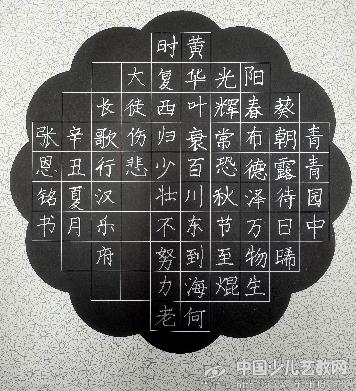 青青园中
葵朝露待日晞
阳春布德泽万物生
光辉常恐秋节至焜
黄华叶衰百川东到海何
时复西归少壮不努力老
大徒伤悲
长歌行汉乐府
辛丑夏月
张恩铭书
中国少儿艺教网